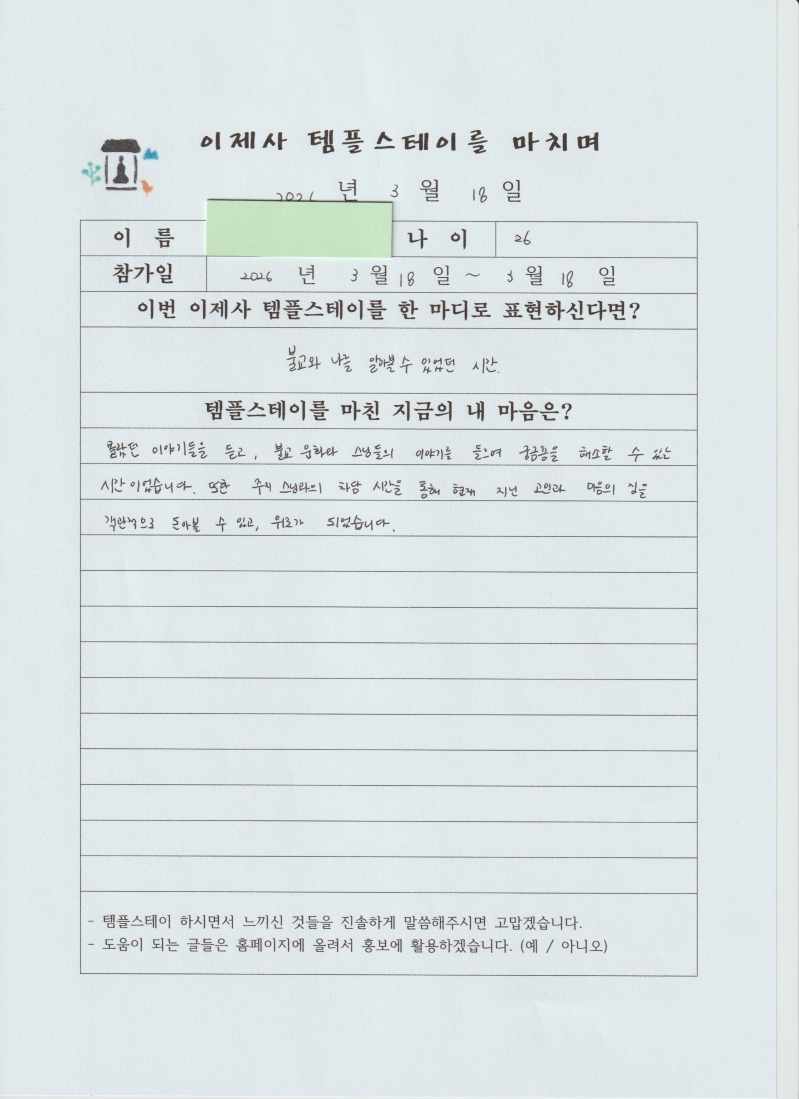 이제사 템플스테이를 마치며
2026 년 3 월 18 일
이 름 나 이 26
참가일 2026 년 3 월 18 일 ~ 3 월 18 일
이번 이제사 템플스테이를 한 마디로 표현하신다면?
불교와 나를 알아볼 수 있었던 시간.
템플스테이를 마친 지금의 내 마음은?
몰랐던 이야기들을 듣고, 불교 문화와 스님들의 이야기를 들으며 궁금증을 해소할 수 있는
시간이었습니다. 또한 주지 스님과의 차담 시간을 통해 현재 지닌 고민과 마음의 짐을
객관적으로 돌아볼 수 있고, 위로가 되었습니다.
- 템플스테이 하시면서 느끼신 것들을 진솔하게 말씀해주시면 고맙겠습니다.
- 도움이 되는 글들은 홈페이지에 올려서 홍보에 활용하겠습니다. (예 / 아니오)